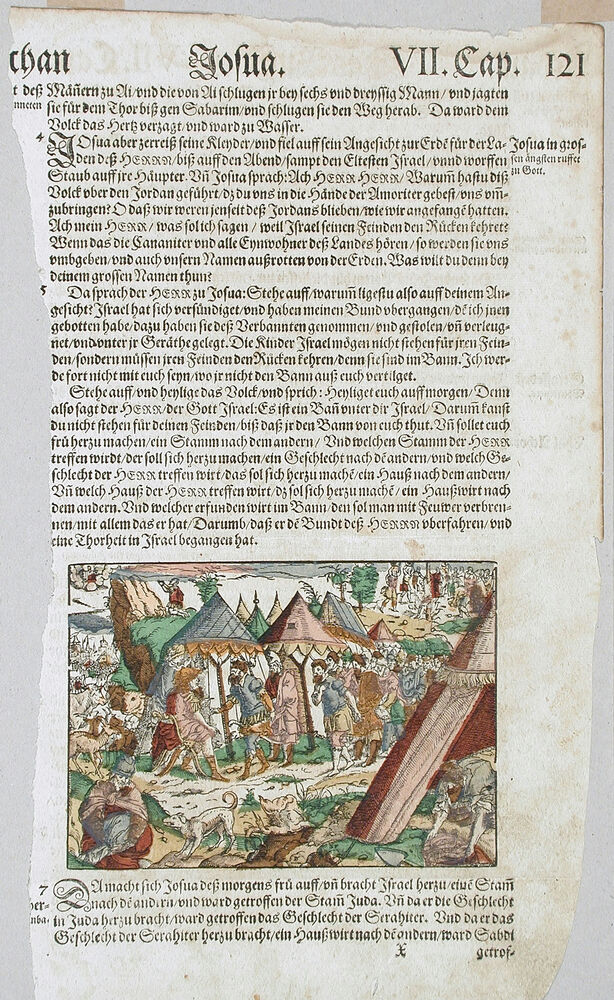 chan Josua. VII. Cap. 121
t deß Mäñern zu Ai/vnd die von Ai schlugen jr bey sechs vnd dreyssig Mann/vnd jagten
nneten sie für dem Thor biß gen Sabarim/vnd schlugen sie den Weg herab. Da ward dem
Volck das Hertz verzagt/vnd ward zu Wasser.
4 JOsua aber zerreiß seine Kleyder/vnd fiel auff sein Angesicht zur Erdē für der La- Josua in gros-
den deß HERRN/biß auff den Abend/sampt den Eltesten Israel/vnnd worffen sen ängsten ruffet
Staub auff jre Häupter. Vñ Josua sprach: Ach HERR HERR/Warumb hastu diß zu Gott.
Volck vber den Jordan geführt/dz du vns in die Hände der Amoriter gebest/vns vm̃-
zubringen? O daß wir weren jenseit deß Jordans blieben/wie wir angefangē hatten.
Ach mein HERR/was sol ich sagen/weil Israel seinen Feinden den Rücken kehret?
Wenn das die Cananiter vnd alle Eynwohner deß Landes hören/so werden sie vns
vmbgeben/vnd auch vnsern Namen außrotten von der Erden. Was wilt du denn bey
deinem grossen Namen thun?
5 Da sprach der HERR zu Josua: Stehe auff/warum̃ ligestu also auff deinem An-
gesicht? Israel hat sich versündiget/vnd haben meinen Bund vbergangen/dē ich jnen
gebotten habe/dazu haben sie deß Verbannten genommen/vnd gestolen/vñ verleug-
net/vnd vnter jr Geräthe gelegt. Die Kinder Israel mögen nicht stehen für jren Fein-
den/sondern müssen jren Feinden den Rücken kehren/denn sie sind im Bann. Ich wer-
de fort nicht mit euch seyn/wo jr nicht den Bann auß euch vertilget.
Stehe auff/vnd heylige das Volck/vnd sprich: Heyliget euch auff morgen/Denn
also sagt der HERR/der Gott Israel: Es ist ein Bañ vnter dir Israel/Darum̃ kanst
du nicht stehen für deinen Feinden/biß daß jr den Bann von euch thut. Vñ sollet euch
frü herzu machen/ein Stamm nach dem andern/Vnd welchen Stamm der HERR
treffen wirdt/der soll sich herzu machen/ein Geschlecht nach dē andern/vnd welch Ge-
schlecht der HERR treffen wirt/das sol sich herzu machē/ein Hauß nach dem andern/
Vñ welch Hauß der HERR treffen wirt/dz sol sich herzu machē/ein Haußwirt nach
dem andern. Vnd welcher erfunden wirt im Bann/den sol man mit Feuwer verbren-
nen/mit allem das er hat/Darumb/daß er dē Bundt deß HERRN vberfahren/vnd
eine Thorheit in Israel begangen hat.
7 DA macht sich Josua deß morgens frü auff/vñ bracht Israel herzu/einē Stam̃
her- nach dē andern/vnd ward getroffen der Stam̃ Juda. Vñ da er die Geschlecht
nba. in Juda herzu bracht/ward getroffen das Geschlecht der Serahiter. Vnd da er das
Geschlecht der Serahiter herzu bracht/ein Haußwirt nach dē andern/ward Sabdi
X getrof-